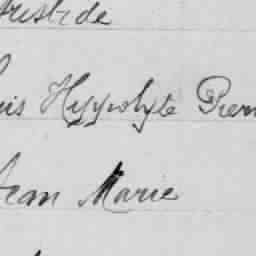 Aristide
uis Hyppolyte Pierr
Jean Marie